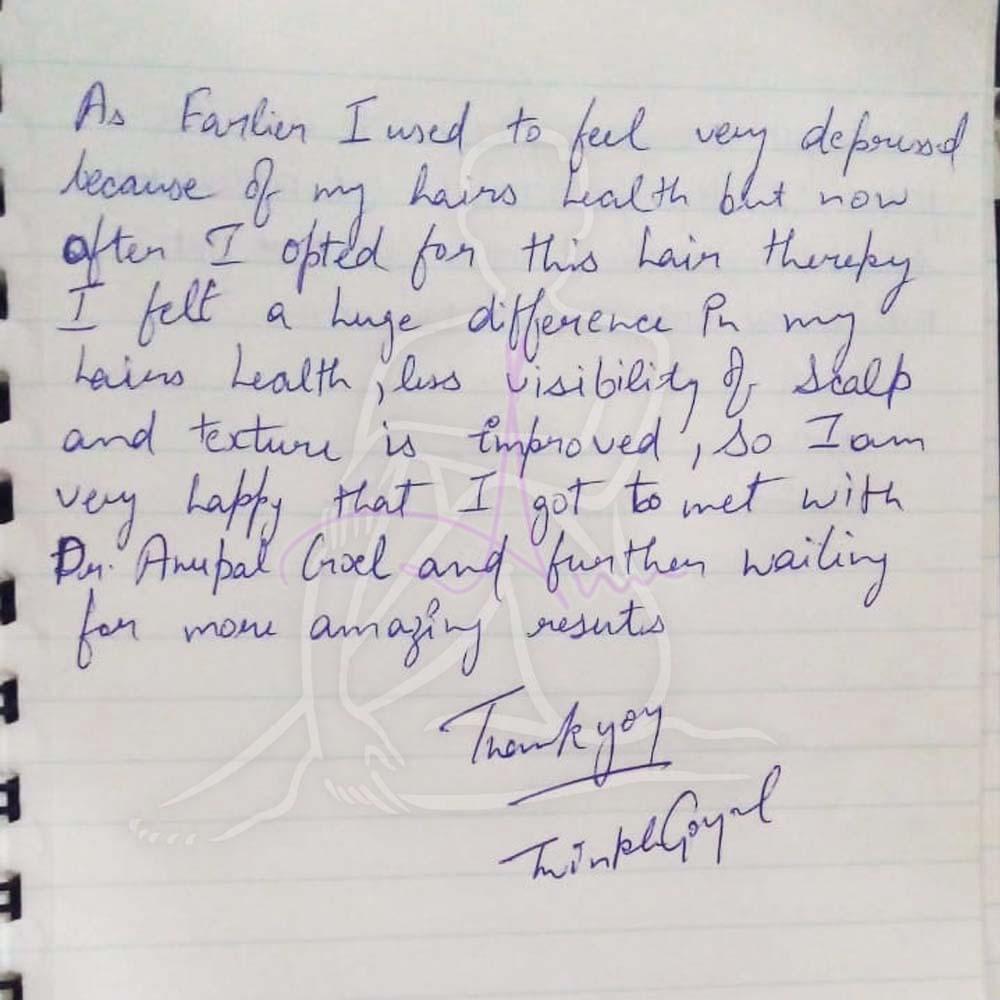 As Earlier I used to feel very depressed
because of my hairs health but now
after I opted for this hair therepy
I felt a huge difference in my
hairs health, less visibility of scalp
and texture is improved, so I am
very happy that I got to met with
Dr. Anupal Goel and further waiting
for more amazing results
Thankyou
Twinkle Goyal